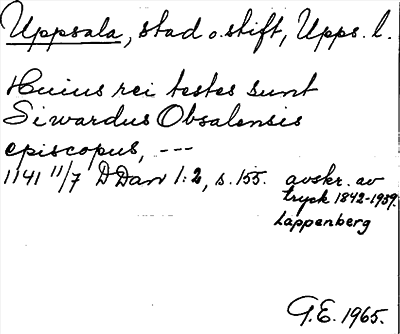 Uppsala, stad o. stift, Upps. l.
Huius rei testes sunt
Siwardus Obsalensis
episcopus, ---
1141 11/7 DDan 1:2, s. 155. avskr. av
tryck 1842-1959.
Lappenberg
G.E. 1965.